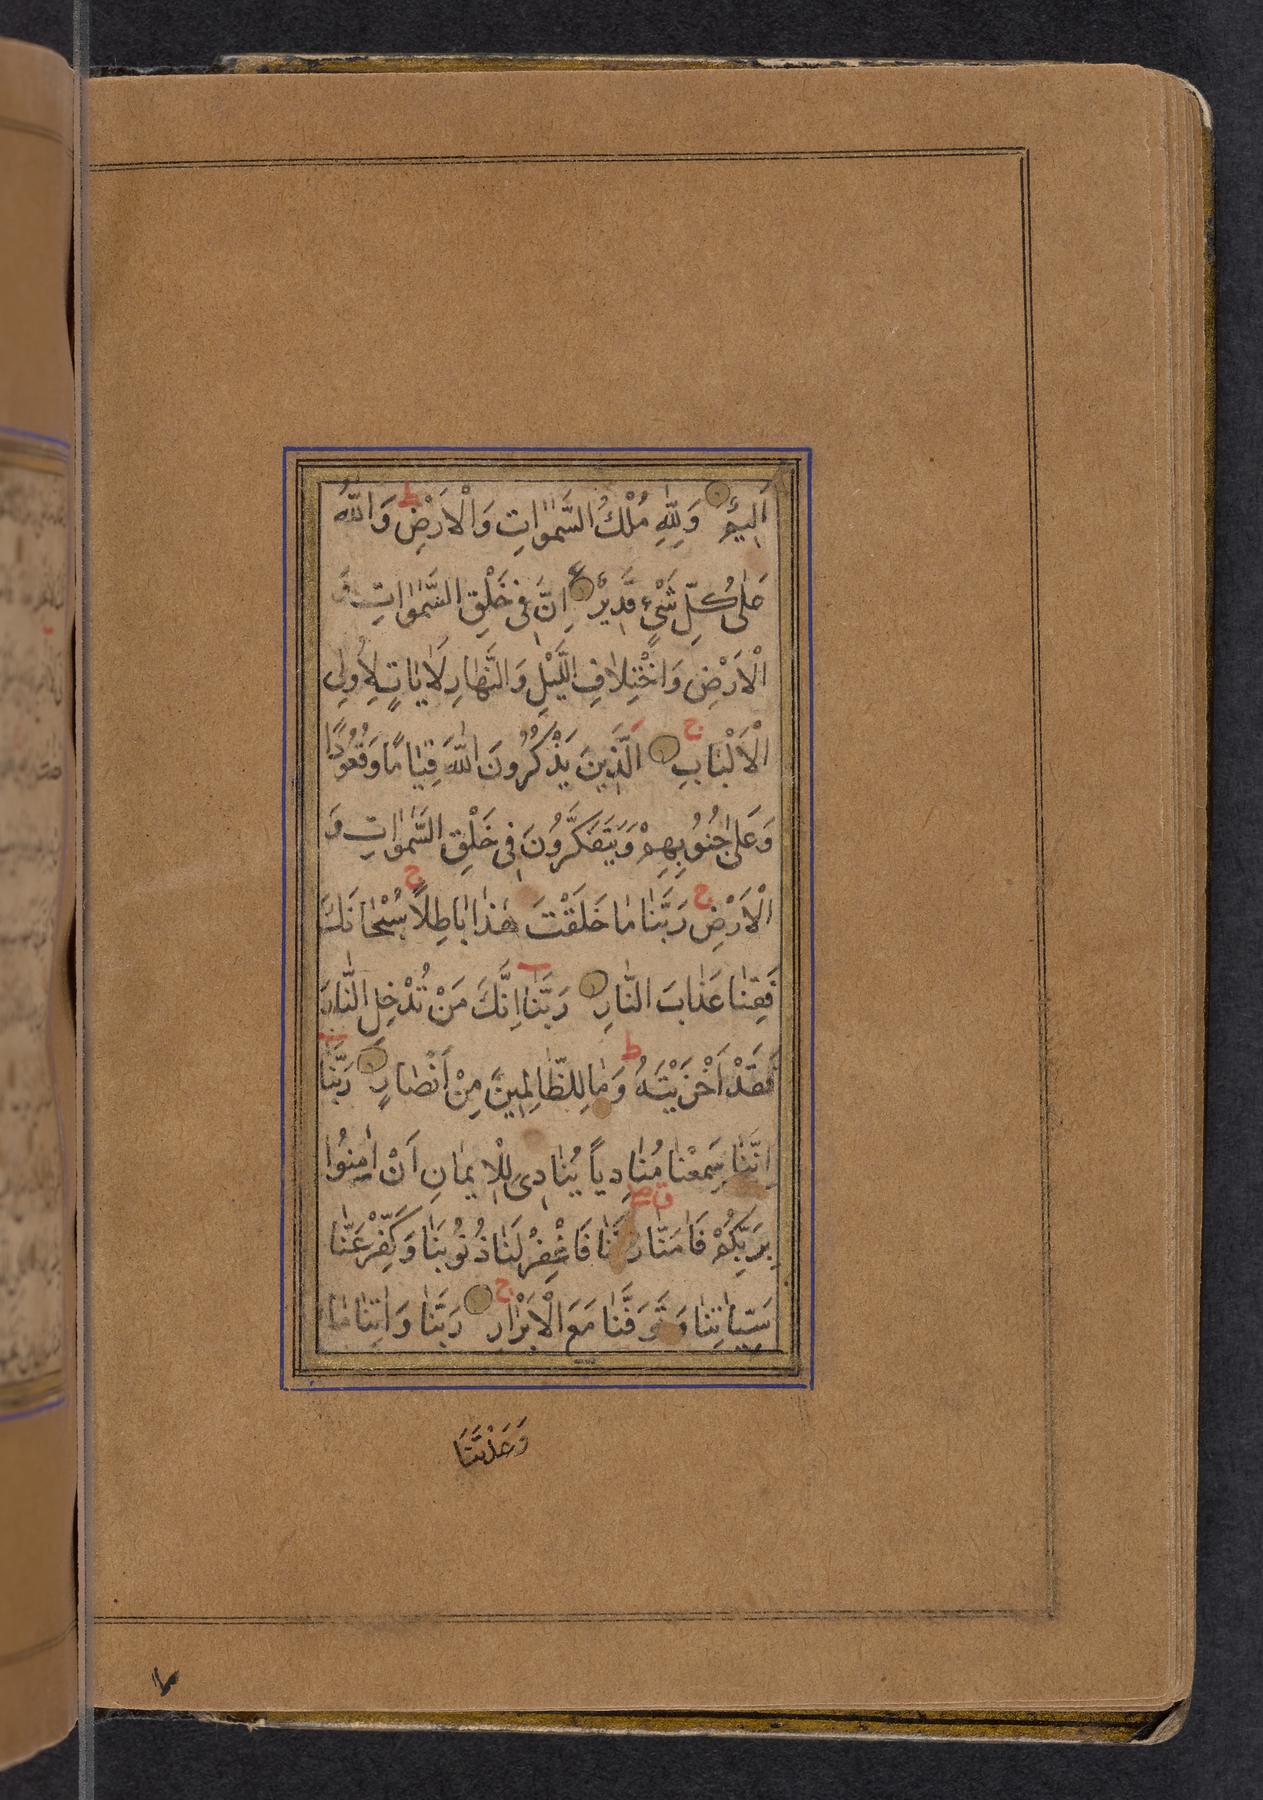 اَلِيمٌ وَلِلّٰهِ مُلْكُ السَّمٰوٰاتِ وَالْاَرْضِ ط وَاللّٰهُ
عَلٰى كُلِّ شَيْءٍ قَدِيرٌ ع اِنَّ فِى خَلْقِ السَّمٰوٰاتِ وَ
الْاَرْضِ وَاخْتِلاٰفِ اللَّيْلِ وَالنَّهٰارِ لَاٰيٰاتٍ لِاُولِى
الْاَلْبٰابِ ج اَلَّذِينَ يَذْكُرُونَ اللّٰهَ قِيٰامًا وَقُعُودًا
وَعَلٰى جُنُوبِهِمْ وَيَتَفَكَّرُونَ فِى خَلْقِ السَّمٰوٰاتِ وَ
الْاَرْضِ ج رَبَّنٰا مٰا خَلَقْتَ هٰذٰا بٰاطِلًا ج سُبْحٰانَكَ
فَقِنٰا عَذٰابَ النّٰارِ رَبَّنٰا اِنَّكَ مَنْ تُدْخِلِ النّٰارَ
فَقَدْ اَخْزَيْتَهُ ط وَمٰا لِلظّٰالِمِينَ مِنْ اَنْصٰارٍ رَبَّنٰا
اِنَّنٰا سَمِعْنٰا مُنٰادِياً يُنٰادِى لِلْاِيمٰانِ اَنْ اٰمِنُوا
بِرَبِّكُمْ فَاٰمَنّٰا رَبَّنٰا فَاغْفِرْ لَنٰا ذُنُوبَنٰا وَكَفِّرْ عَنّٰا
سَيِّئاٰتِنٰا وَتَوَفَّنٰا مَعَ الْاَبْرٰارِ ج رَبَّنٰا وَاٰتِنٰا مٰا
وَعَدْتَنَا